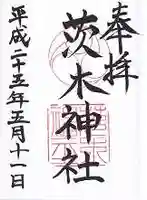 奉拝
茨木神社
平成二十五年五月十一日